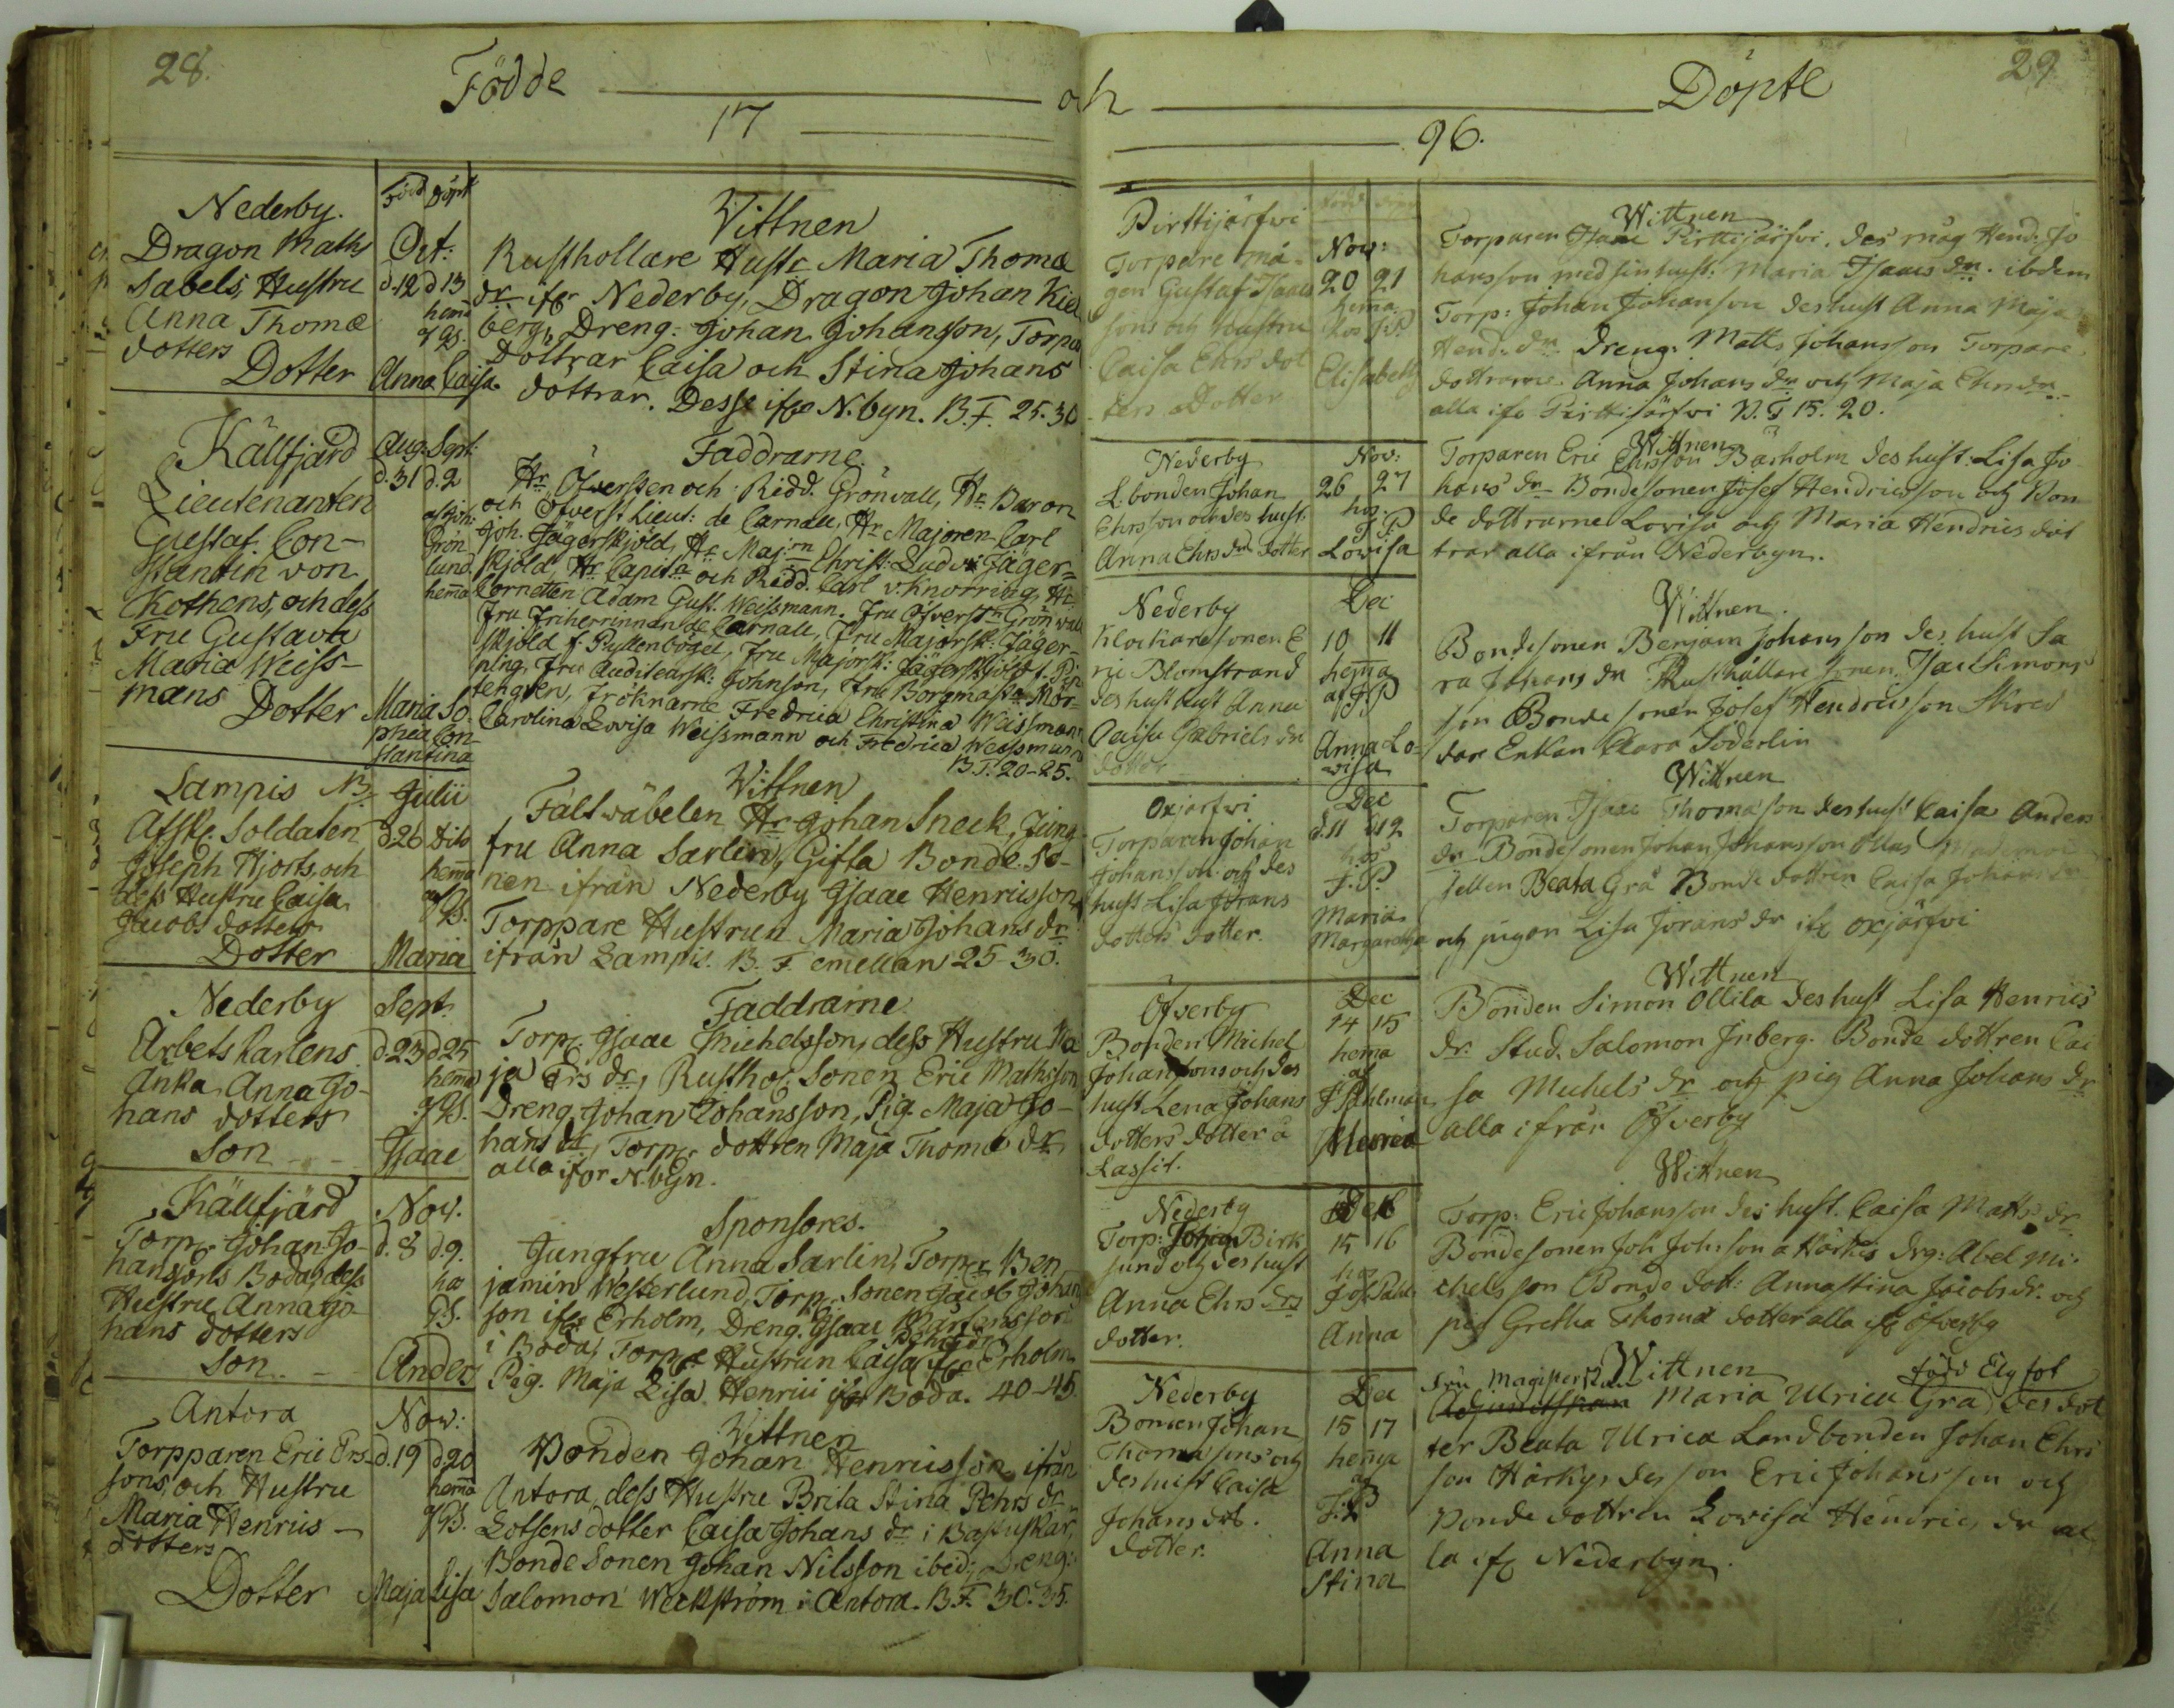 28.
Födde och Döpte
29
17 96.
Född Döpt
Nederby.
Dragon Maths
Sabels, Hustru
Anna Thomæ
dotters
Dotter
Oct:
d.12 d 13
hema
af GS.
Anna Caisa
Vittnen
Rusthollare Hustr Maria Thomæ
dr ifr Nederby, Dragon Johan Kiel
berg, Dreng: Johan Johansson, Torpa
Dottrar Caisa och Stina Johans
dottrar. Desse ifr N.byn. B.F. 25.30
Källfjärd
Lieutenanten
Gustaf Con-
stantin von
Kothens, och dess
Fru Gustava
Maria Weiss-
mans Dotter
Aug: Sept:
d.31 d.2
af Joh:
Grön
lund
hema
Maria So
phia Con-
stantina
Faddrarne
Hr Öfversten och Ridd. Grönvall, Hr Baron
och Öfverst Lieut: de Carnall, Hr Majoren Carl
Joh. Jägerskjöld, Hr Maj:rn Christ: Ludv: Jäger=
skjöld, Hr Capit:n och Ridd. Carl v. Knorring, Hr
Cornetten Adam Gust. Weissmann. Fru Öfverst:n Grönvall
Fru Friherrinnan de Carnall, Fru Majorsk: Jäger-
skjöld f. Pistenbögel, Fru Majorsk: Jägerskjöld f. Pip
ping, Fru Auditearsk: Johnson, Fru Borgmast:n Mör-
tengren, Fröknarne Fredrica Christina Weissmann
Carolina Lovisa Weissmann och Fredrica Weissmann
B.F. 20-25.
Sampis N.
Afske. Soldaten
Joseph Hjorts, och
dess Hustru Caisa
Jacobs dotters
Dotter
Julii
d 26 dito
hema
af GS.
Maria
Vittnen
Fältväbelen Hr Johan Sneck, Jung
fru Anna Sarlin, Gifta Bonde So-
nen ifrån Nederby Isaac Henricsson
Torppare Hustrun Maria Johans dr
ifrån Sampis. B. F. emellan 25-30.
Nederby
Arbets Karlens
Anka Anna Jo-
hans dotters
Son
Sept:
d.23 d 25
hema
af GS.
Isaac
Faddrarne
Torp. Isaac Michelsson, dess Hustru Ma
ja Ers dr, Rusthol. Sonen Eric Mathsson
Dreng Johan Johansson, Pig. Maja Jo-
hans dr, Torp. dottren Maja Thomæ dr
alla ifr N.byn.
Källfjärd
Torp. Johan Jo-
hanssons Boda, dess
Hustru Anna Jo-
hans dotters
Son
Nov.
d. 8 d.9.
hos
GS.
Anders
Sponsores.
Jungfru Anna Sarlin, Torp. Ben
jamin Westerlund, Torp. Sonen Jacob Johans
son ifr Erholm, Dreng. Isaac Mårtensson
i Boda, Torp Hustrun Caisa Pehrs dr ifr Erholm
Pig. Maja Lisa Henrici ifr Boda. 40-45.
Antora
Torpparen Eric Ers-
sons, och Hustru
Maria Henrics -
dotters
Dotter
Nov:
d.19 d 20
hema
af GS.
Maja Lisa
Vittnen
Bonden Johan Henricsson ifrån
Antora, dess Hustru Brita Stina Pehrs dr
Lotsens dotter Caisa Johans dr i Bastuskär,
Bonde Sonen Johan Nilsson ibid; Dreng:
Salomon Weckström i Antora. B.F. 30.35.
Född Döpt
Pirttijärfvi
Torpare må-
gen Gustaf Isaacs
sons och hustru
Caisa Ehrs dot
ters Dotter
Nov:
20 21
hema
hos F.P
Elisabeth
Wittnen
Torparen Isaac Pirttijärfvi, des måg Hend: Jo
hansson med sin hust: Maria Isaacs dr. ibdem
Torp: Johan Johanson des hust Anna Maja
Hend: dr Dreng: Matts Johansson Torpare
dottrarne Anna Johans dr och Maja Ehrs dr
alla ifr Pirttijärfvi B.F 15. 20.
Nederby
L.bonden Johan
Ehrsson och des hust.
Anna Ehrs dr dotter
Nov:
26 27
hos
F.P
Lowisa
Wittnen
Torparen Eric Ehrsson Barholm des hust: Lisa Jo
hans dr Bondesonen Josef Hendricsson och Bon
de dottrarne Lovisa och Maria Hendrics dot
trar alla ifrån Nederbyn.
Nederby
Klockare sonen E
ric Blomstrand
des hust Anna
Caisa Gabriels dr
dotter
Dec
10 11
hema
af F.P
Anna Lo-
visa
Wittnen.
Bondesonen Benjam Johansson des hust Sa
ra Johans dr Rusthållare sonen Isac Simons
son Bonde sonen Josef Hendricsson Skred
dare Enkan Clara Söderlin
Oxjärfvi
Torparen Johan
Johansson och des
hust Lisa Jörans
dotters dotter.
Dec
d.11 d 12
hos
F.P.
Maria
Margaretha
Wittnen
Torparen Isaac Thomason des hust Caisa Anders
dr Bondesonen Johan Johansson Ollas Mademoi
sellen Beata Grå Bonde dottren Caisa Johans dr
och pigan Lisa Jörans dr ifr Oxjärfvi
Öfverby
Bonden Michel
Johanssons och des
hust Lena Johans
dotters dotter å
Lassil.
Dec
14 15
hema
af
F Pahlman
Ulrica
Wittnen
Bonden Simon Ollila des hust Lisa Henrics
dr. Stud. Salomon Inberg. Bonde dottren Cai
sa Michels dr och pig Anna Johans dr
alla ifrån Öfverby
Nederby
Torp: Johan Birk
sund och des hust
Anna Ehrs drs
dotter.
Dec
15 16
hos
J of Pahl:
Anna
Wittnen
Torp: Eric Johansson des hust. Caisa Matts dr
Bondesonen Joh Johsson a Härkis Drg: Abel Mi-
chelsson Bonde dott: Annastina Jacobs dr. och
pig Gretha Thomæ dotter alla ifr Öfverby
Nederby
Bonden Johan
Thomæsons och
des hust Caisa
Johans dot.
dotter.
Dec
15 17
hema
af
F.P
Anna
Stina
Wittnen
Fru Magisterskan född Elgfot
Adjunctskan Maria Ulrica Grå, des dot
ter Beata Ulrica Landbonden Johan Ehrs
son Härkys des son Eric Johansson och
Bonde dottren Lovisa Hendrics dr al
la ifr Nederbyn.